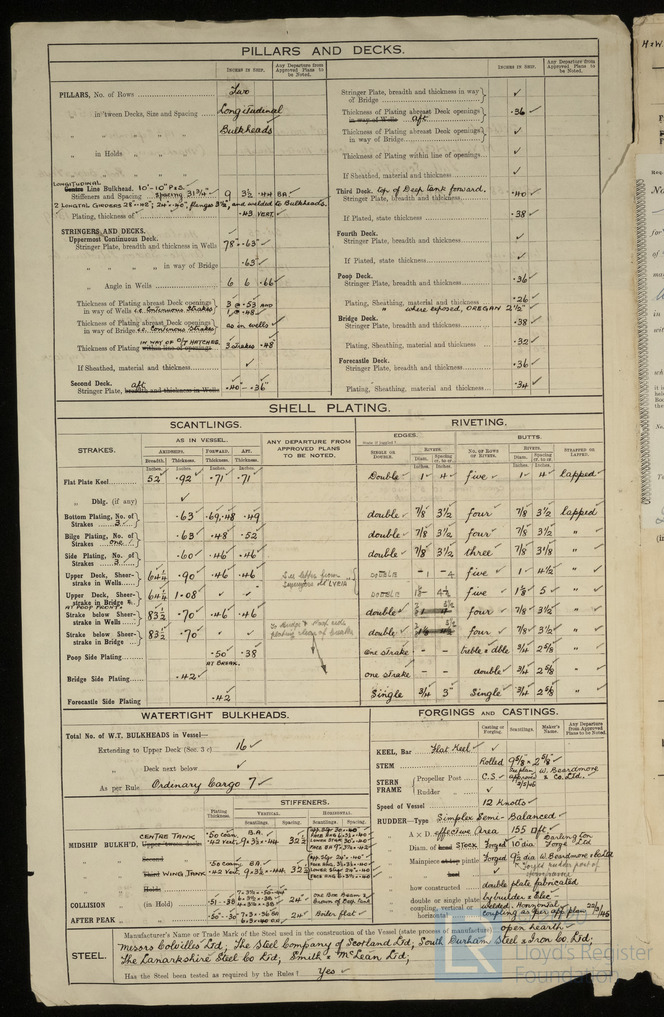 PILLARS AND DECKS.
INCHES IN SHIP.
Any Departure from Approved Plans to be Noted.
INCHES IN SHIP.
Any Departure from Approved Plans to be Noted.
PILLARS, No. of Rows Two
" in 'tween Decks, Size and Spacing Longitudinal
" " " Bulkheads
" in Holds " "
" " "
LONGITUDINAL
Centre Line Bulkhead. 10'-10" P&S.
Stiffeners and Spacing spacing 31 3/4" 9 3½ .44 BA.
Plating, thickness of .43 VERT.
STRINGERS AND DECKS.
Uppermost Continuous Deck.
Stringer Plate, breadth and thickness in Wells 78" .63
" " " " in way of Bridge .63
" Angle in Wells 6 6 .66
Thickness of Plating abreast Deck openings in way of Wells i.e. continuous strakes 3 @ .53 AND 1 @ .48
Thickness of Plating abreast Deck openings in way of Bridge i.e. continuous strakes as in wells
IN WAY OF O/T HATCHES
Thickness of Plating within line of openings 3 strakes .48
If Sheathed, material and thickness ✓
Second Deck. aft
Stringer Plate, breadth and thickness in Wells .40 - .36
Stringer Plate, breadth and thickness in way of Bridge ✓
Thickness of Plating abreast Deck openings in way of Wells aft .36 ✓
Thickness of Plating abreast Deck openings in way of Bridge ✓
Thickness of Plating within line of openings ✓
If Sheathed, material and thickness ✓
Third Deck. top of Deep tank forward.
Stringer Plate, breadth and thickness .40 ✓
If Plated, state thickness .38 ✓
Fourth Deck.
Stringer Plate, breadth and thickness ✓
If Plated, state thickness ✓
Poop Deck.
Stringer Plate, breadth and thickness .36 ✓
Plating, Sheathing, material and thickness .26 ✓
" where exposed, OREGAN 2½"
Bridge Deck.
Stringer Plate, breadth and thickness .38 ✓
Plating, Sheathing, material and thickness .32 ✓
Forecastle Deck.
Stringer Plate, breadth and thickness .36 ✓
Plating, Sheathing, material and thickness .34 ✓
SHELL PLATING.
SCANTLINGS.
RIVETING.
STRAKES.
AS IN VESSEL.
AMIDSHIPS. FORWARD. AFT.
Breadth. Thickness. Thickness. Thickness.
ANY DEPARTURE FROM APPROVED PLANS TO BE NOTED.
EDGES.
BUTTS.
SINGLE OR DOUBLE.
RIVETS.
Diam. Spacing cr. to cr.
No. OF ROWS OF RIVETS.
RIVETS.
Diam. Spacing cr. to cr.
STRAPPED OR LAPPED.
Flat Plate Keel 52 .92 .71 .71 Double 1 4 five 1 4 lapped
" Dblg. (if any) ✓
Bottom Plating, No. of Strakes 3 .63 .69 .48 .49 double 7/8 3½ four 7/8 3½ lapped
Bilge Plating, No. of Strakes one .63 .48 .52 double 7/8 3½ four 7/8 3½ "
Side Plating, No. of Strakes 3 .60 .46 .46 double 7/8 3½ three 7/8 3 1/8 "
Upper Deck, Sheerstrake in Wells 64¼ .90 .46 .46 DOUBLE 1 4 five 1 4½ "
Upper Deck, Sheerstrake in Bridge & 64¼ 1.08 ✓ ✓ DOUBLE five 1 1/8 5 "
AT POOP FRONT
Strake below Sheerstrake in Wells 83½ .70 .46 .46 double four 7/8 3½ "
Strake below Sheerstrake in Bridge 83½ .70 ✓ ✓ double four 7/8 3½ "
Poop Side Plating .50 .38 one strake - - treble & dble 3/4 2 5/8 "
AT BREAK.
Bridge Side Plating .42 one strake - - double 3/4 2 5/8 "
Forecastle Side Plating .42 Single 3/4 3 Single 3/4 2 5/8 "
WATERTIGHT BULKHEADS.
Total No. of W.T. BULKHEADS in Vessel—
Extending to Upper Deck (Sec. 3 c) 16 ✓
" Deck next below ✓
As per Rule Ordinary Cargo 7 ✓
Plating Thickness.
STIFFENERS.
VERTICAL. HORIZONTAL.
Scantlings. Spacing. Scantlings. Spacing.
MIDSHIP BULKH'D, CENTRE TANK
Upper 'tween deck
" " Second "
" " Third WING TANK
" " Hold
COLLISION " (in Hold) .51 - .38 24"
AFTER PEAK " .50 - .30 24" Boiler flat ✓
FORGINGS AND CASTINGS.
Casting or Forging. Scantlings. Maker's Name. Any Departure from Approved Plans to be Noted.
KEEL, Bar Flat Keel ✓ ✓
STEM Rolled 9 5/8 x 2 5/8 W. Beardmore & Co. Ltd.
STERN FRAME { Propeller Post C.S. See plan approved
" Rudder " ✓
Speed of Vessel 12 Knots ✓
RUDDER—Type Simplex Semi-Balanced ✓
" A × D. effective Area 155 □ft ✓
" Diam. of head STOCK Forged 10 dia Darlington Forge Ltd
" Mainpiece at top pintle Forged 9½ dia W. Beardmore & Co Ltd
" " heel
" how constructed double plate fabricated
" double or single plate by builder & Elec-
" coupling, vertical or horizontal welded. Horizontal
coupling as per app. plan
STEEL. Manufacturer's Name or Trade Mark of the Steel used in the construction of the Vessel (state process of manufacture) open hearth
Messrs Colvilles Ltd; The Steel Company of Scotland Ltd; South Durham Steel & Iron Co Ltd;
The Lanarkshire Steel Co Ltd; Smith & McLean Ltd;
Has the Steel been tested as required by the Rules? Yes ✓
Lloyd's Register
Foundation